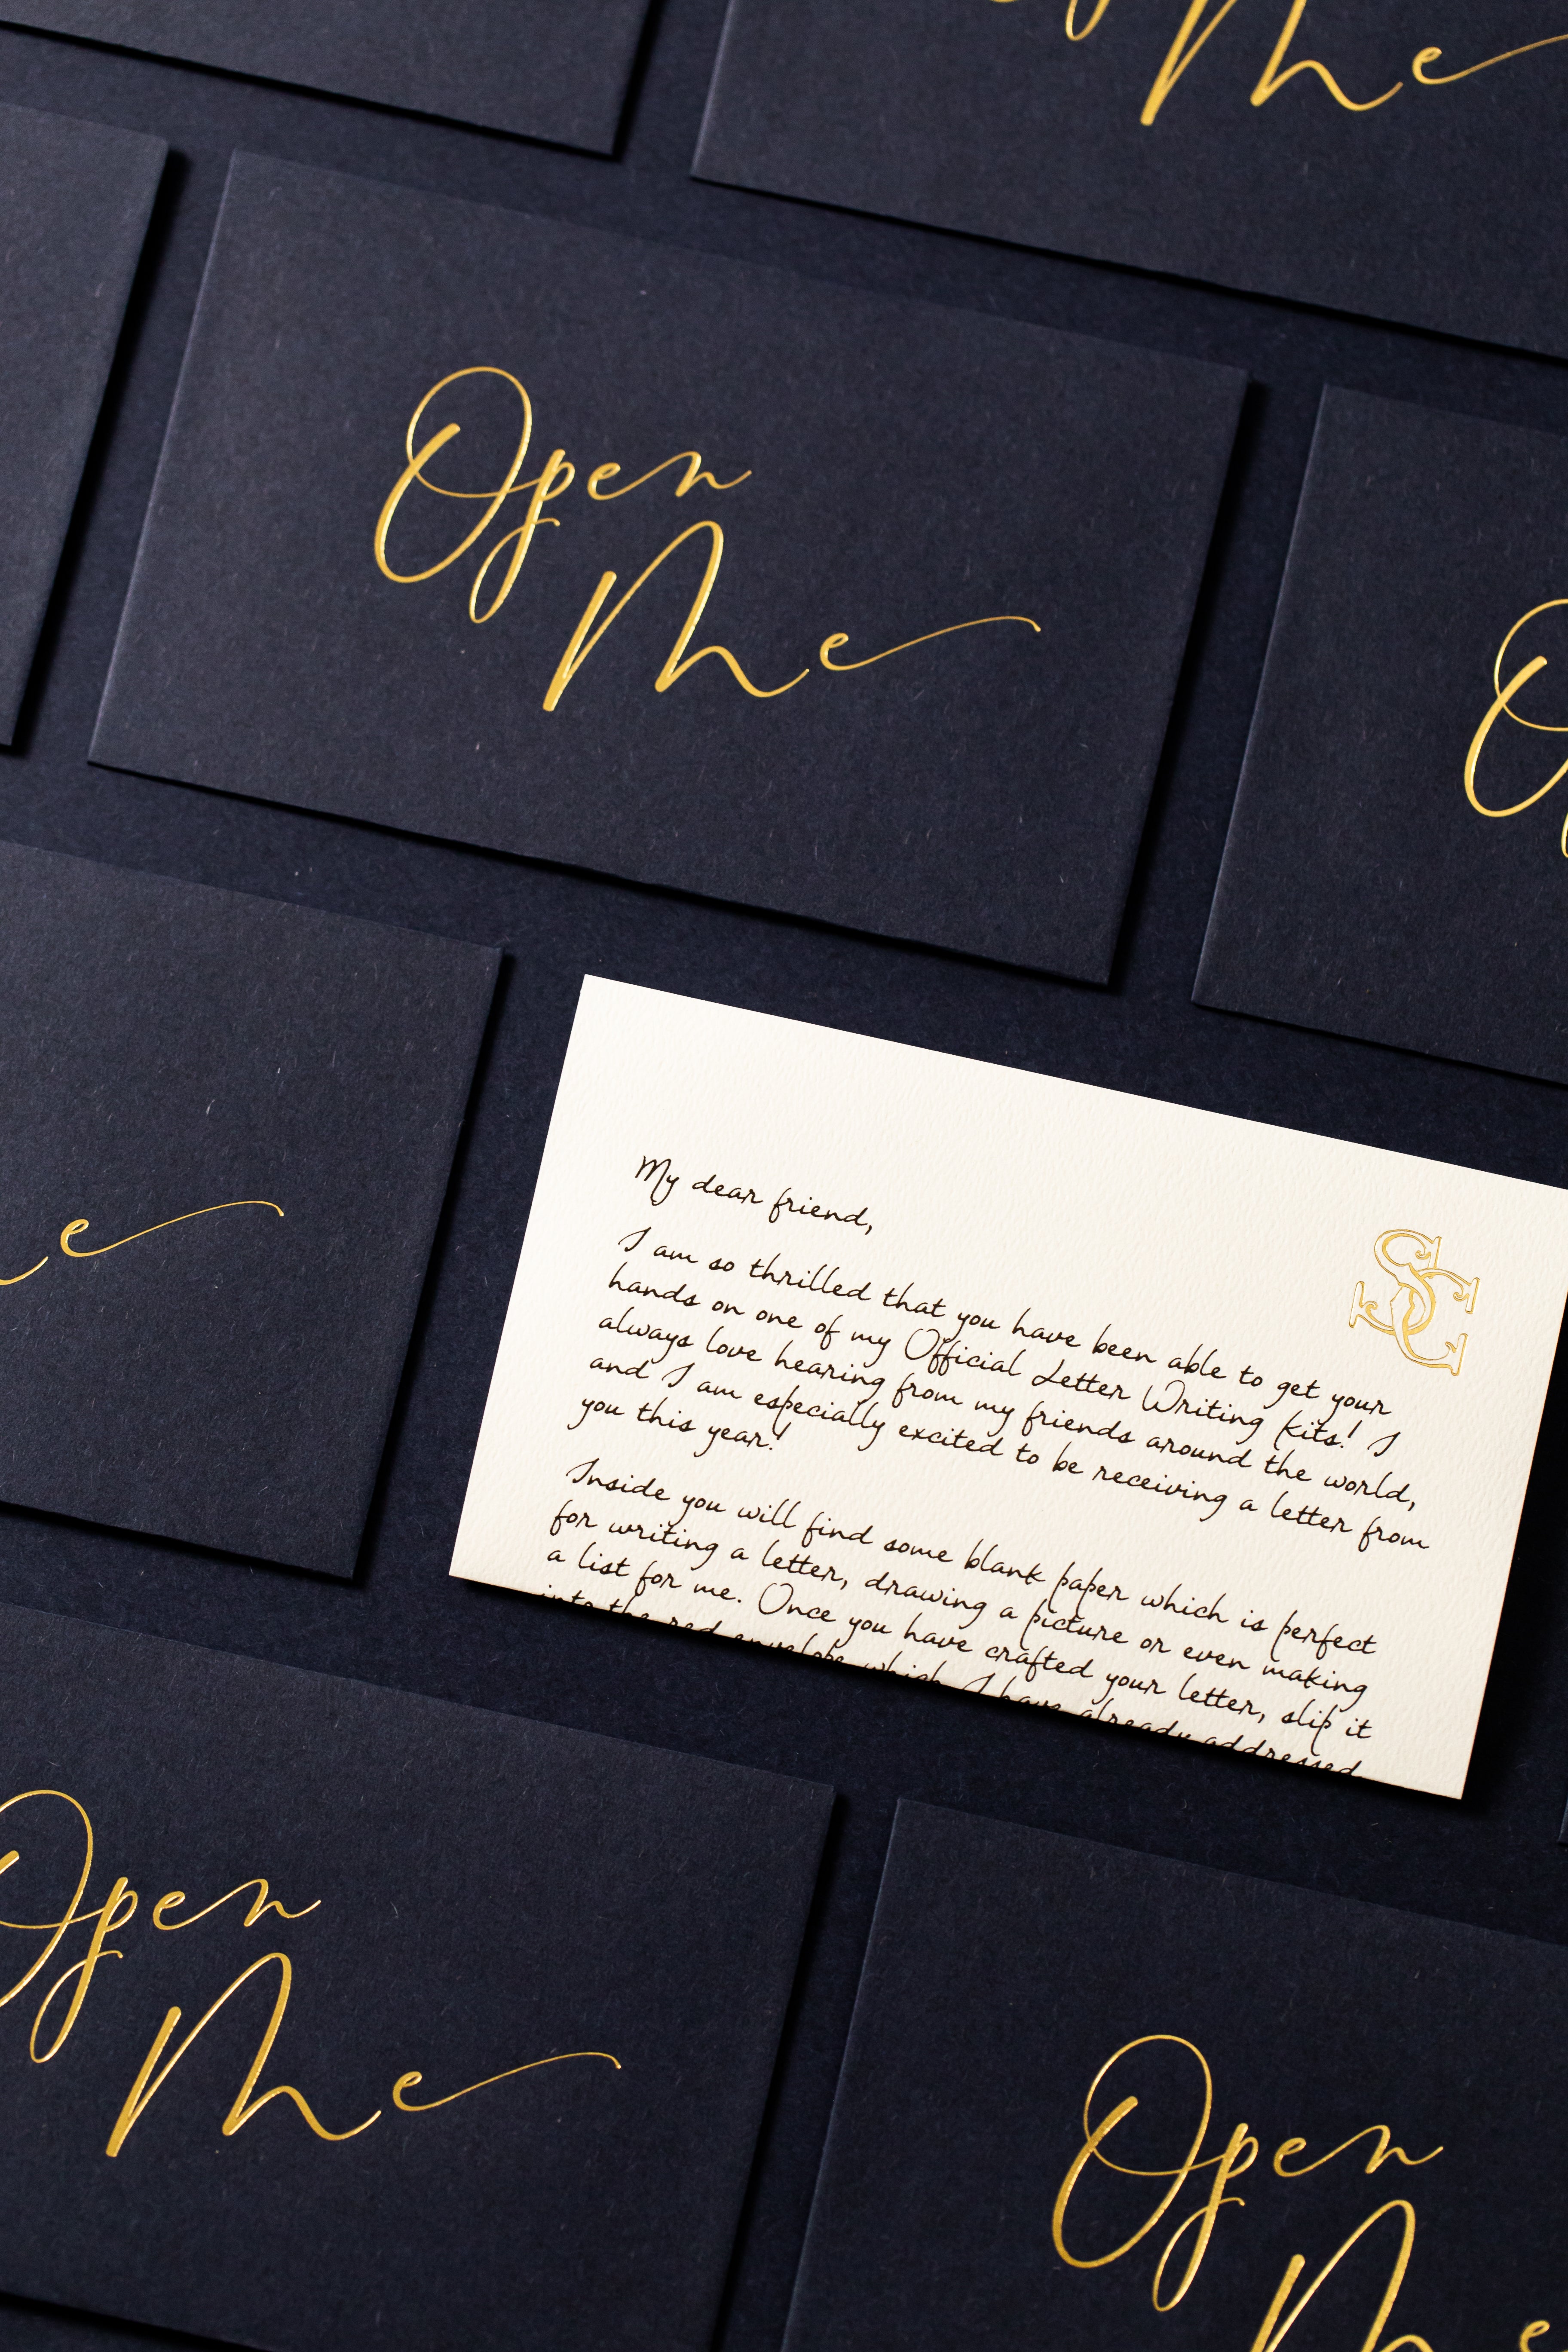 Me
Open
Me
O
e
My dear friend,
I am so thrilled that you have been able to get your
hands on one of my Official Letter Writing Kits! I
always love hearing from my friends around the world,
and I am especially excited to be receiving a letter from
you this year!
Inside you will find some blank paper which is perfect
for writing a letter, drawing a picture or even making
a list for me. Once you have crafted your letter, slip it
into the red envelope which I have already addressed
SC
Open
Me
Open
Me